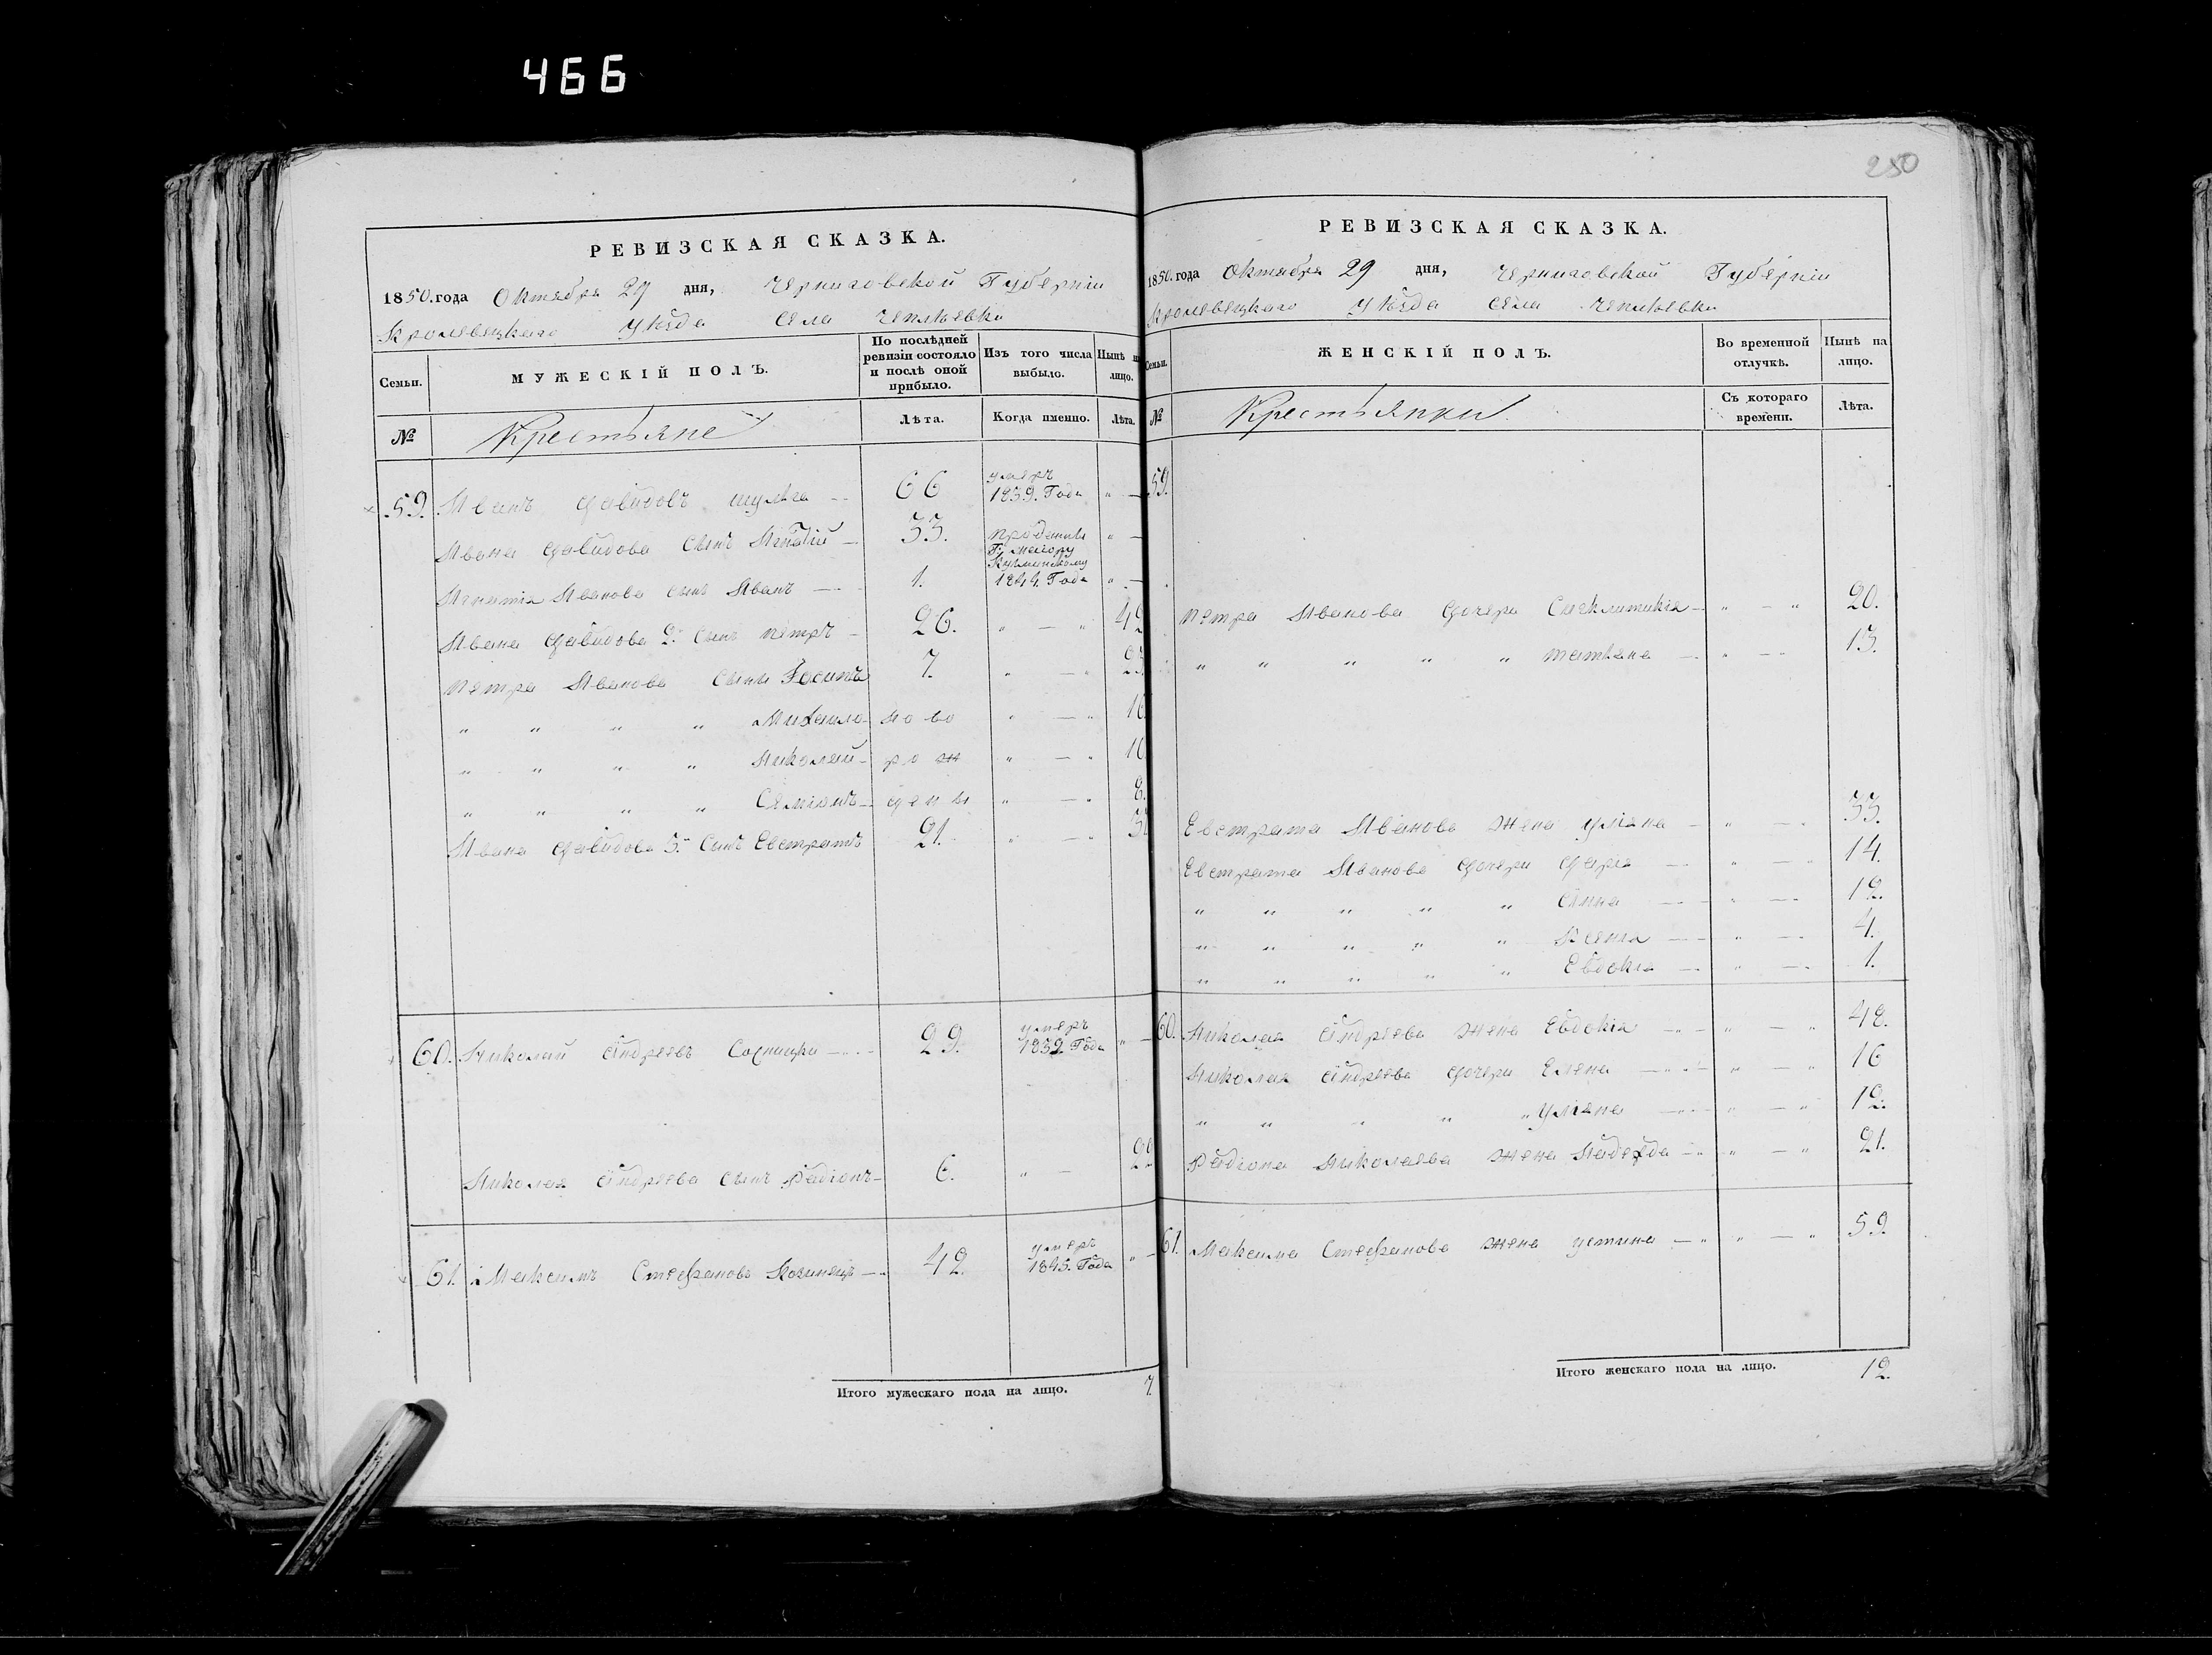 466
РЕВИЗСКАЯ СКАЗКА.
1850. года Октября 29 дня, Черниговской Губерніи
Кролевецкаго Уѣзда Села Чепліевки
Семьи. МУЖЕСКІЙ ПОЛЪ. По послѣдней ревизіи состояло и послѣ оной прибыло. Изъ того числа выбыло. Нынѣ на лицо.
№ Крестьяне Лѣта. Когда именно. Лѣта.
59. Иванъ Давидовъ Шульга 66 умеръ 1839. Года " —
Ивана Давидова Сынъ Игнатій 33. проданы Г: маіору 1844. Года " —
Игнатія Иванова сынъ Иванъ 1. " —
Ивана Давидова 2й Сынъ Петръ 26. " — "
Петра Иванова Сынъ Іосипъ 7. " — "
" " " " Михаило но во " — "
" " " " Николай ро ж " — " 10
" " " " Семіонъ ден ы " — " 8.
Ивана Давидова 3й Сынъ Евстратъ 21. " — "
60. Николай Андреевъ 29. умеръ 1839 Года " —
Николая Андреева сынъ Радіонъ 6. " — 22
61. Максимъ Стефановъ 42. умеръ 1845. Года " —
Итого мужескаго пола на лицо. 7.
250
РЕВИЗСКАЯ СКАЗКА.
1850. года Октября 29 дня, Черниговской Губерніи
Кролевецкаго Уѣзда Села Чепліевки
Семьи. ЖЕНСКІЙ ПОЛЪ. Во временной отлучкѣ. Нынѣ на лицо.
№ Крестьянки Съ котораго времени. Лѣта.
59.
Петра Иванова Дочери Синклитикія " — " 20.
" " " " " Татіана " — " 13.
Евстрата Иванова жена Уліяна " — " 33.
Евстрата Иванова Дочери Дарія " — " 14.
" " " " " Анна " — " 12.
" " " " " Ксенія " — " 4.
" " " " " Евдокія " — " 1.
60. Николая Андреева жена Евдокія " — " 48.
Николая Андреева Дочери Елена " — " 16
" " " " " Уліяна " — " 12.
Радіона Николаева жена Надежда " — " 21.
61. Максима Стефанова жена Устина " — " 59.
Итого женскаго пола на лицо. 12.